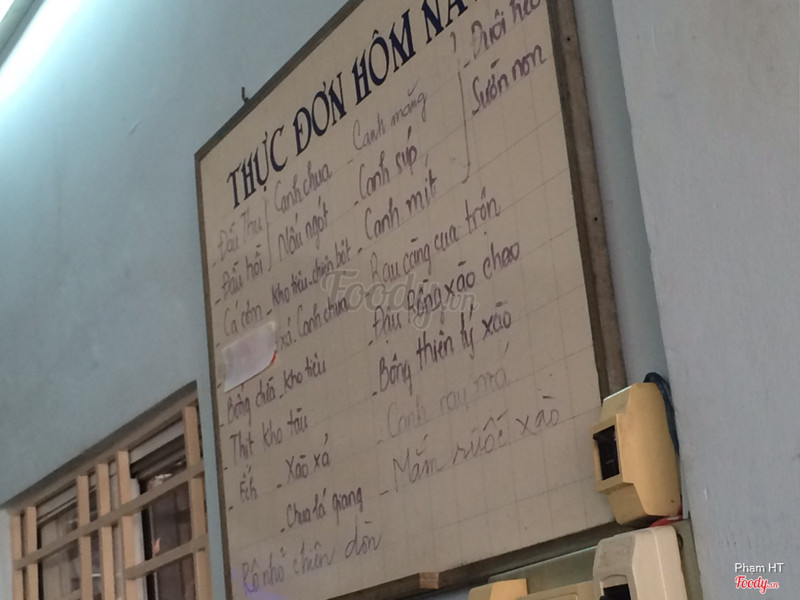 THỰC ĐƠN HÔM NA
- Đầu Thu
- Đầu hồi
Canh chua
Nấu ngót
- Cá cơm - Kho tiêu - chiên bột
xả - Canh chua
- Bông chĩa - Kho tiêu
- Thịt Kho tàu
- Ếch - Xào xả
- Chua lá giang
Rô nhỏ chiên dòn
- Canh măng
- Canh súp
- Canh mít
- Đuôi heo
Sườn non
- Rau càng cua trộn
- Đậu Rồng xào chao
- Bông thiên lý xào
- Canh rau má
- Mắm ruốc xào
Foody.vn
Pham HT
Foody.vn